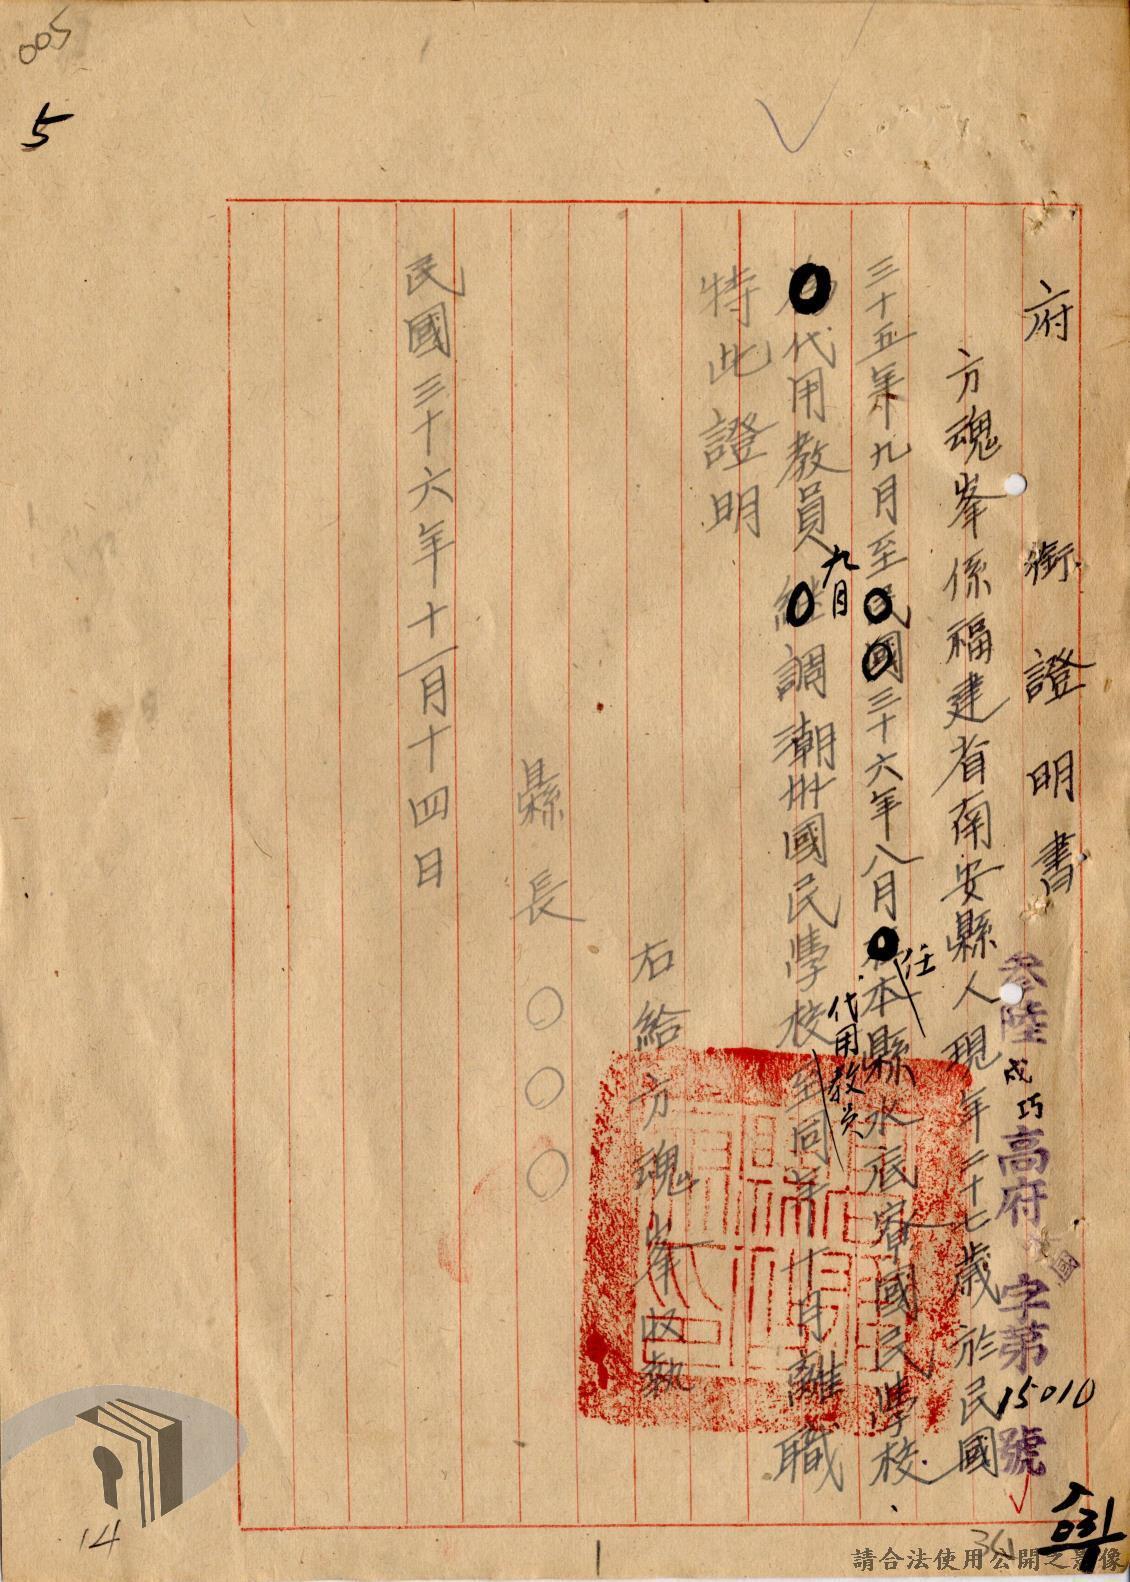 005
5
府銜證明書
參陸 戍巧 高府 字第15010號
方魂峯係福建省南安縣人現年二十七歲於民國
三十五年九月至民國三十六年八月 任本縣水底寮國民學校
為代用教員 九月 繼調潮州國民學校 代用教員 至同年十月離職
特此證明
右給方魂峯收執
縣長○○○
民國三十六年十一月十四日
14
1
請合法使用公開之影像